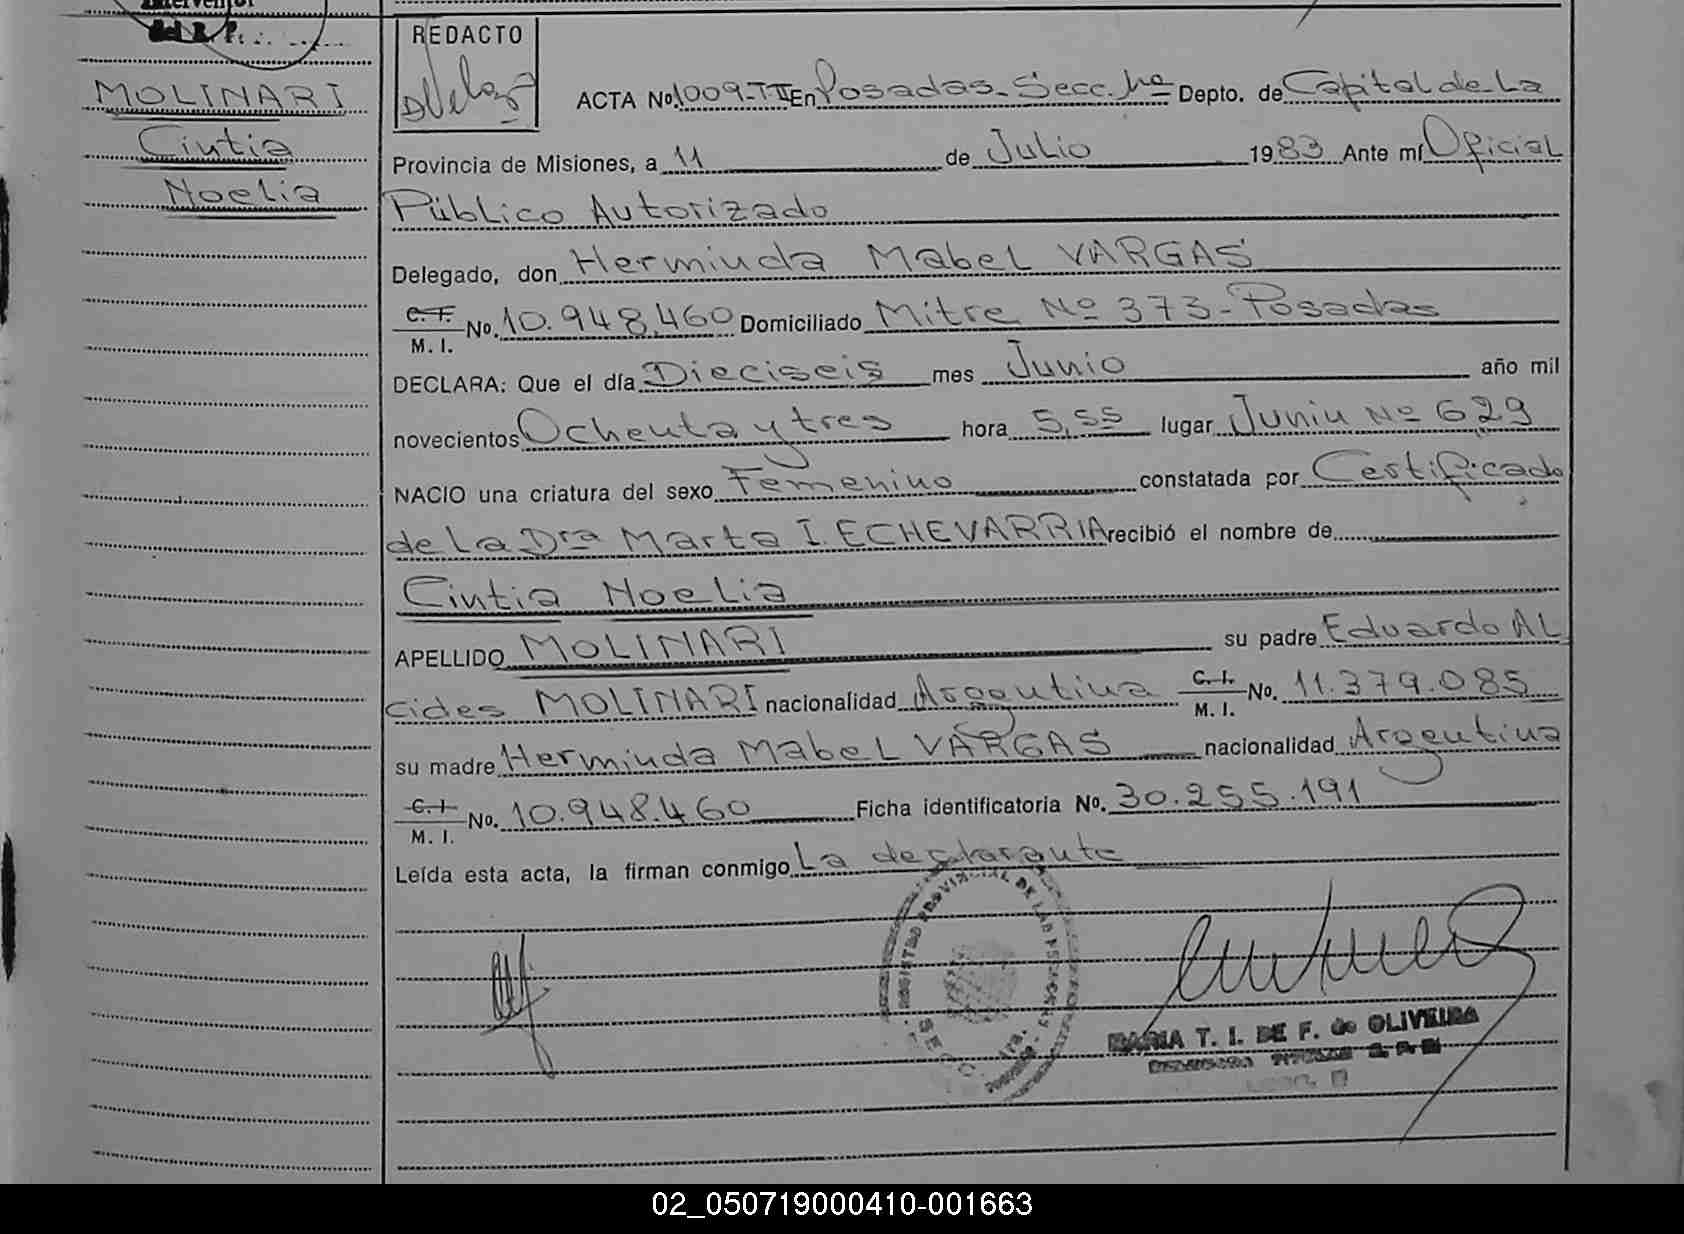 Interventor
del R. P.
MOLINARI
Cintia
Noelia
REDACTO
ACTA No. 1009-TII En Posadas - Secc. 1ra Depto. de Capital de La
Provincia de Misiones, a 11 de Julio 1983 Ante mí Oficial
Público Autorizado
Delegado, don Herminda Mabel VARGAS
C. I.
M. I. No. 10.948.460 Domiciliado Mitre Nº 373 - Posadas
DECLARA: Que el día Dieciseis mes Junio año mil
novecientos Ochenta y tres hora 5,55 lugar Junin Nº 629
NACIO una criatura del sexo Femenino constatada por Certificado
de La Dra Marta I ECHEVARRIA recibió el nombre de
Cintia Noelia
APELLIDO MOLINARI su padre Eduardo AL
cides MOLINARI nacionalidad Argentina C. I.
M. I. No. 11.379.085
su madre Herminda Mabel VARGAS nacionalidad Argentina
C. I.
M. I. No. 10.948.460 Ficha identificatoria No. 30.255.191
Leída esta acta, la firman conmigo La declarante
REGISTRO PROVINCIAL DE LAS PERSONAS
SECC. 1ra.
MARIA T. I. DE F. de OLIVEIRA
02_050719000410-001663